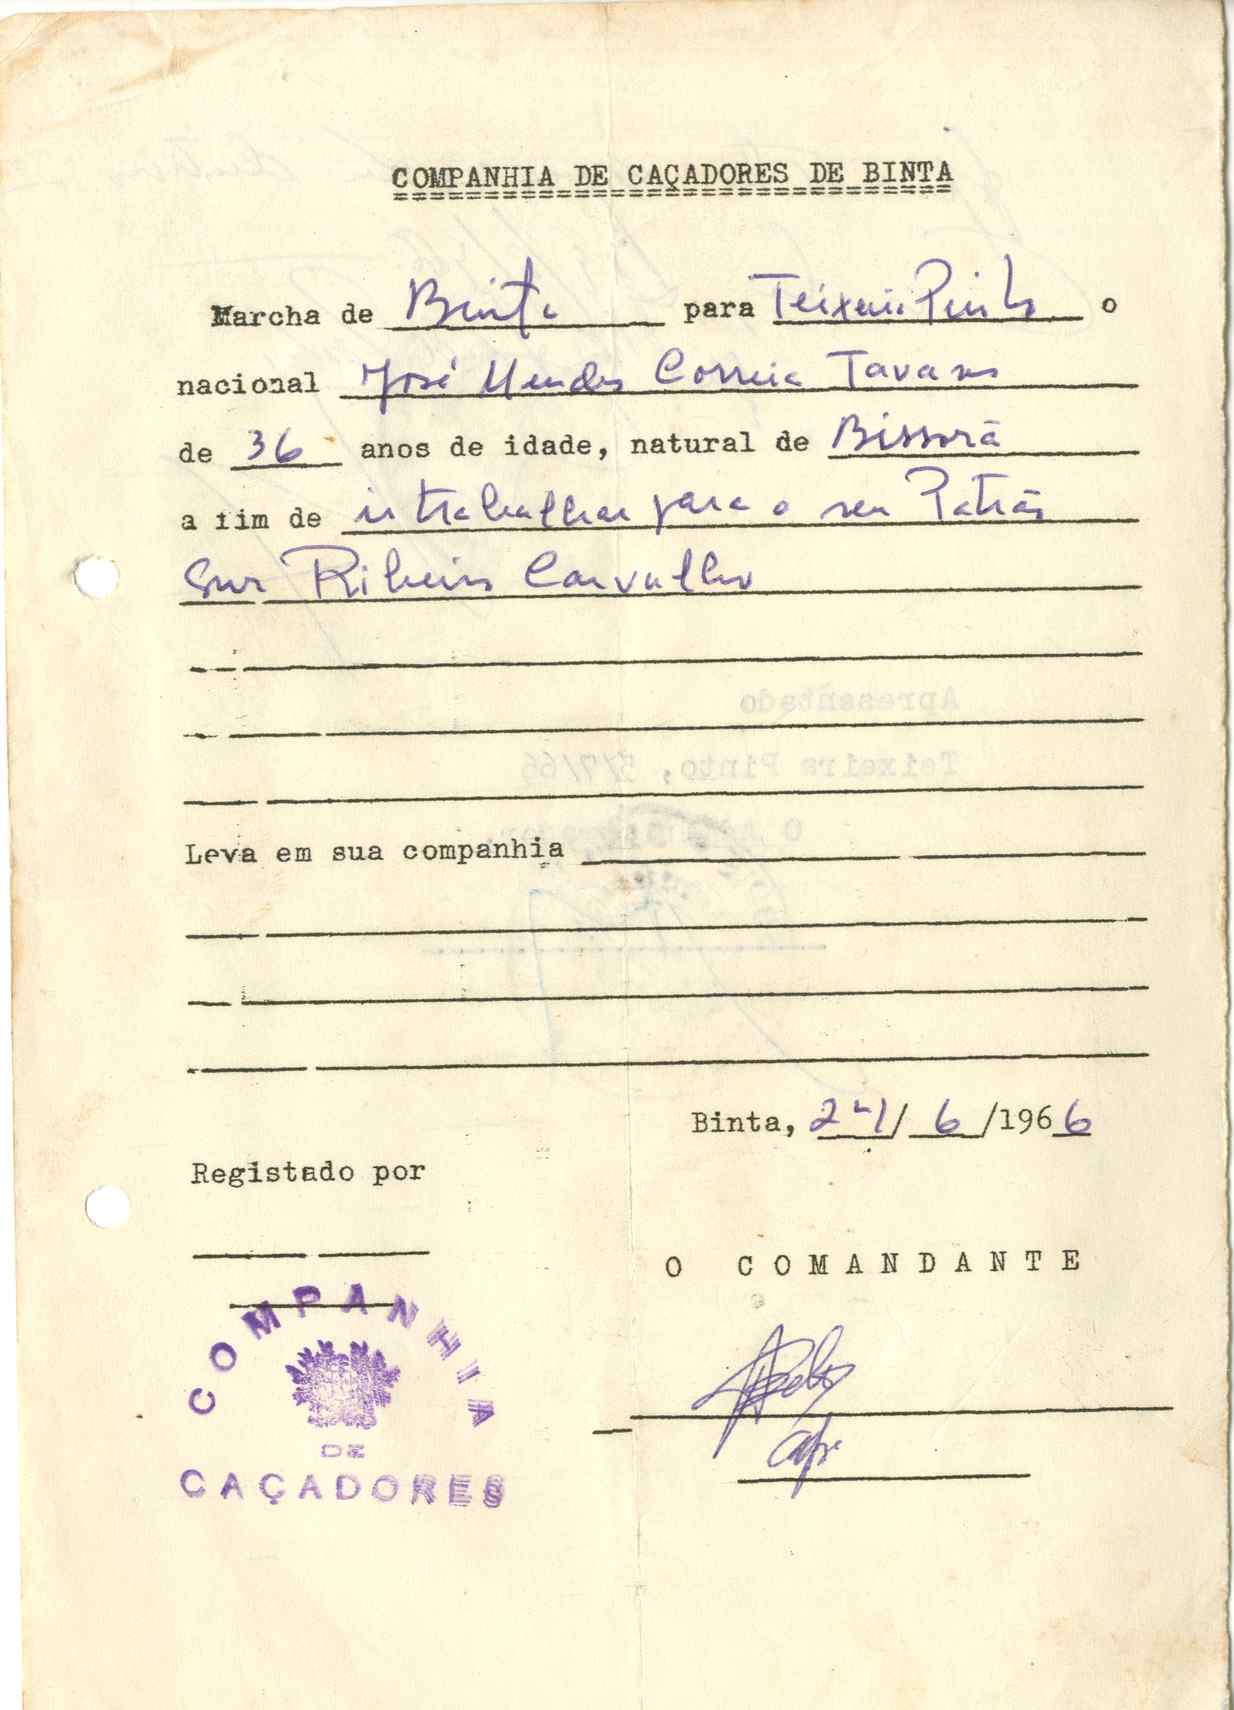 COMPANHIA DE CAÇADORES DE BINTA
Marcha de Binta para Teixeira Pinto o
nacional José Mendes Correia Tavares
de 36 anos de idade, natural de Bissorã
a fim de ir trabalhar para o seu Patrão
Snr Ribeiro Carvalho
Apresentado
Teixeira Pinto, 5/7/66
Leva em sua companhia
Binta, 24/ 6 /1966
Registado por
O COMANDANTE
COMPANHIA
DE
CAÇADORES